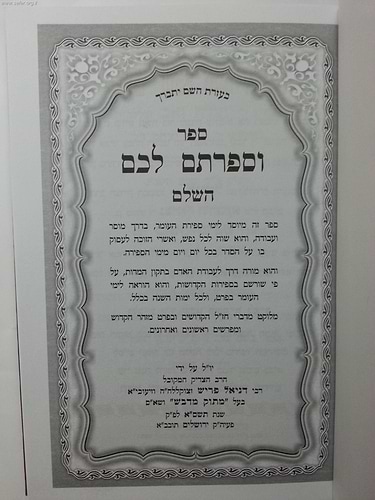 בעזרת השם יתברך
ספר
וספרתם לכם
השלם
ספר זה מיוסד לימי ספירת העומר, בדרך מוסר
ועבודה, והוא שוה לכל נפש, ואשרי הזוכה לעסוק
בו על הסדר בכל יום ויום מימי הספירה.
והוא מורה דרך לעבודת האדם בתקון המדות, על
פי שורשם בספירות הקדושות, והוא הוראה לימי
העומר בפרט, ולכל ימות השנה בכלל.
מלוקט מדברי חז"ל הקדושים ובפרט מזוהר הקדוש
ומפרשים ראשונים ואחרונים.
יו"ל על ידי
הרב הצדיק המקובל
רבי דניאל פריש זצוקללה"ה זיעוכי"א
בעל "מתוק מדבש" ושא"ס
שנת תשס"א לפ"ק
פעיה"ק ירושלים תובב"א